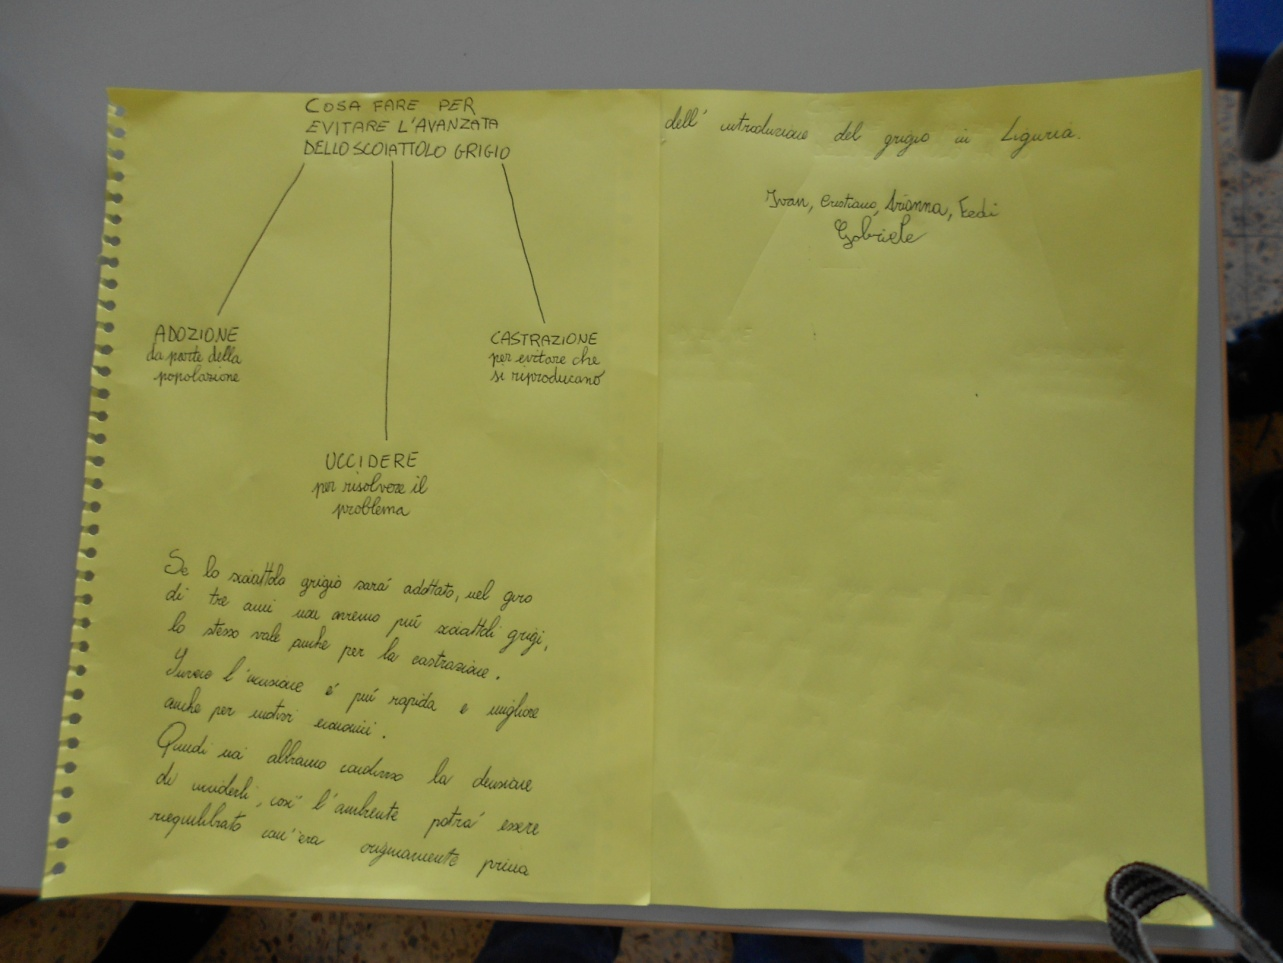 COSA FARE PER
EVITARE L'AVANZATA
DELLO SCOIATTOLO GRIGIO
ADOZIONE
da parte della
popolazione
UCCIDERE
per risolvere il
problema
CASTRAZIONE
per evitare che
si riproducano
Se lo scoiattolo grigio sará adottato, nel giro
di tre anni non avremo piú scoiattoli grigi,
lo stesso vale anche per la castrazione.
Invece l'uccisione é piú rapida e migliore
anche per motivi economici.
Quindi noi abbiamo condiviso la decisione
di ucciderli, cosí l'ambiente potrá essere
riequilibrato com'era originariamente prima
dell'introduzione del grigio in Liguria.
Ivan, Cristiano, Arianna, Fedi
Gabriele